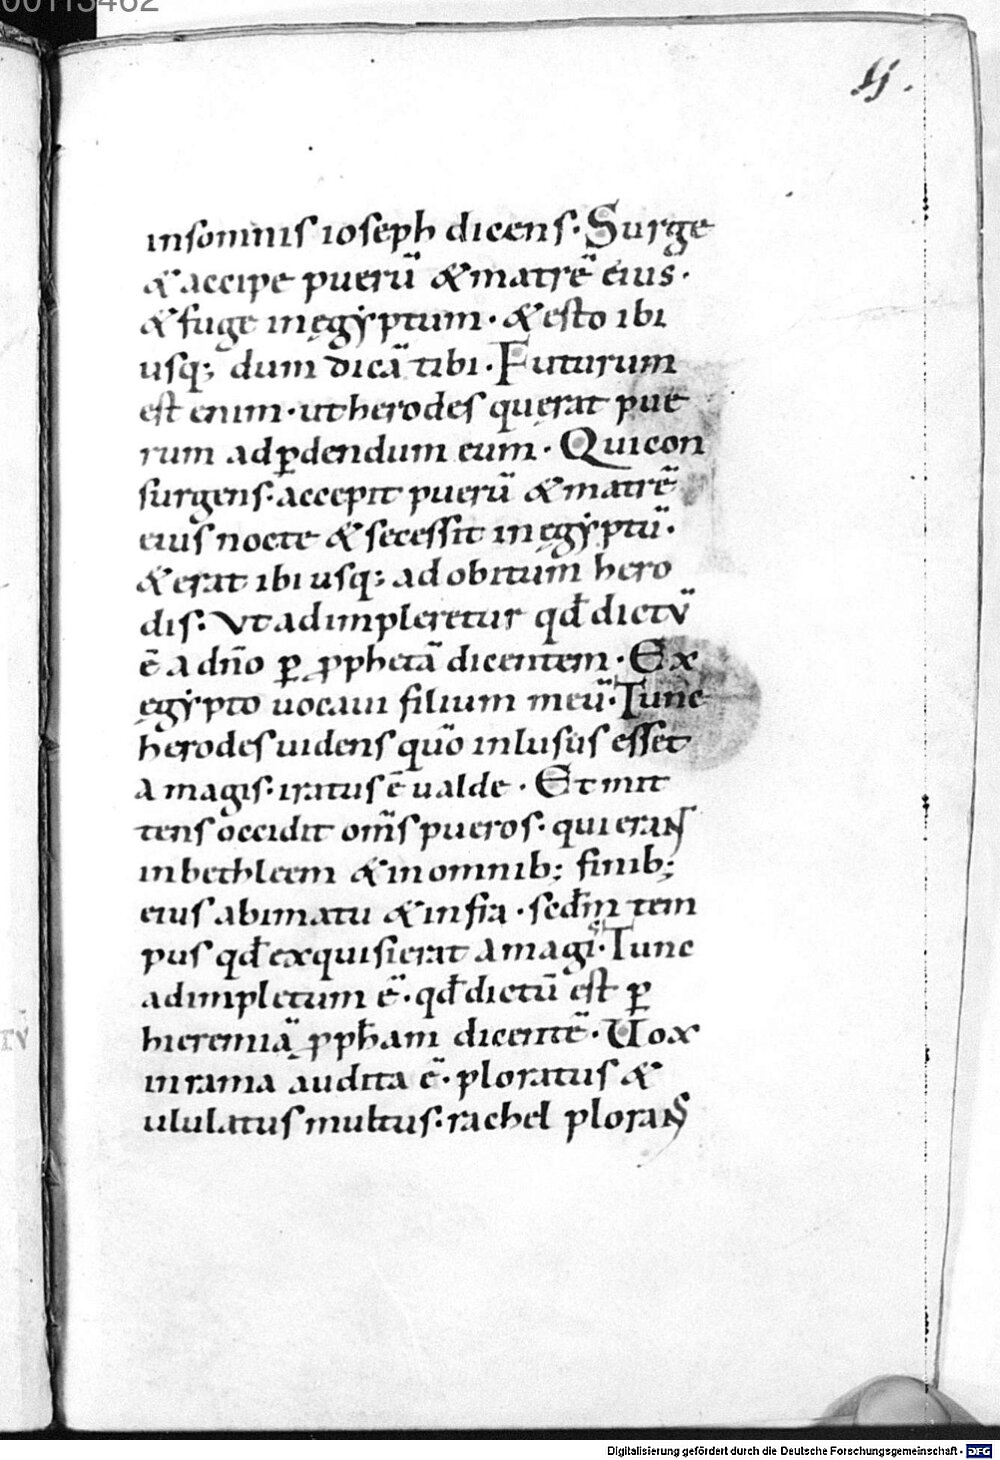 00113462
insomnis ioseph dicens· Surge
& accipe puerū & matrē eius·
& fuge in ęgẏptum· & esto ibi
usq; dum dicā tibi· Futurum
est enim· ut herodes quęrat pue
rum ad ꝑdendum eum· Qui con
surgens· accepit puerū & matrē
eius nocte & secessit in ęgẏptū·
& erat ibi usq; ad obitum hero
dis· Vt adimpleretur qđ dictū
ē a dño ꝑ ꝓphetā dicentem· Ex
ęgẏpto uocaui filium meū· Tunc
herodes uidens quō inlusus esset
a magis· iratus ē ualde· Et mit
tens occidit oms̄ pueros· qui erant
in bethleem & in omnib; finib;
eius a bimatu & infra· scđm tem
pus qđ exquisierat a magis· Tunc
adimpletum ē· qđ dictū est ꝑ
hieremiā ꝓpħam dicentē· Vox
in rama audita ē· ploratus &
ululatus multus· rachel plorans
Digitalisierung gefördert durch die Deutsche Forschungsgemeinschaft - DFG